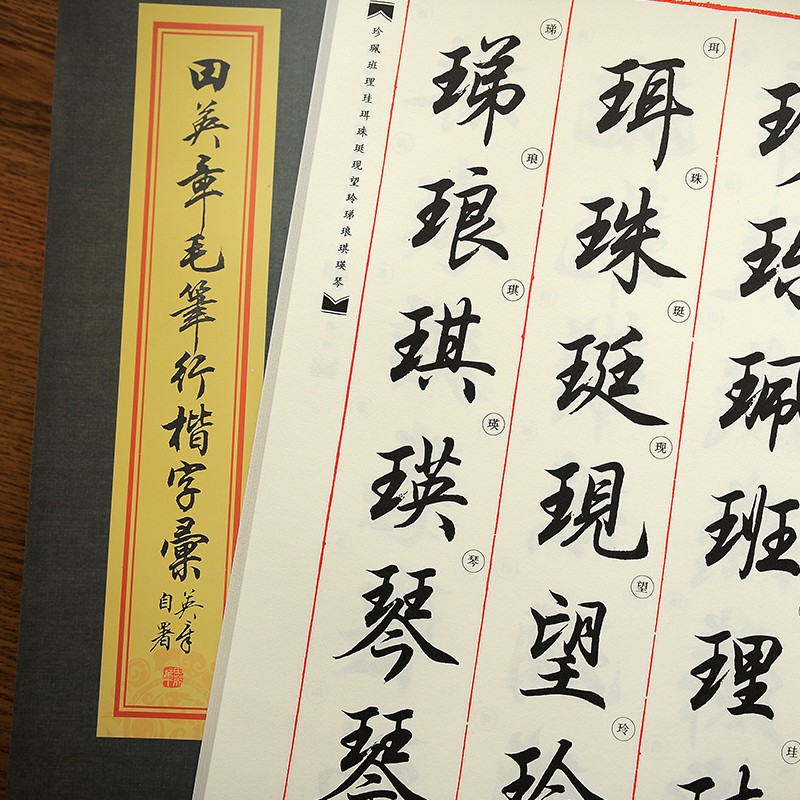 田英章毛筆行楷字彙
英章
自署
珮班理
珪
珥珠珽现望玲
珥珠珽現望玲
珶琅琪瑛琴
珶琅琪瑛琴琴
珍珮班理珪珥珠珽现望玲珶琅琪瑛琴